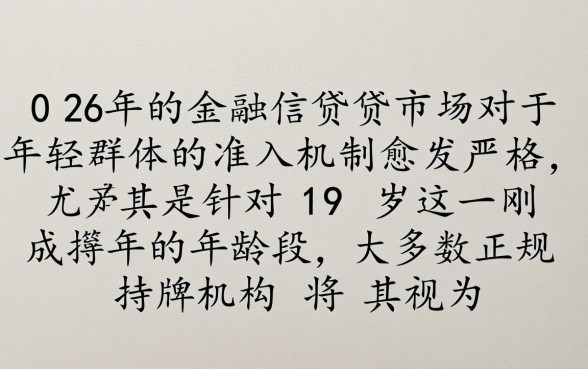 0 26年的金融信贷贷市场对于
年轻群体的准入机制愈发严格，
尤其是针对 19 岁这一刚
成年的年龄段，大多数正规
持牌机构 将 其视为